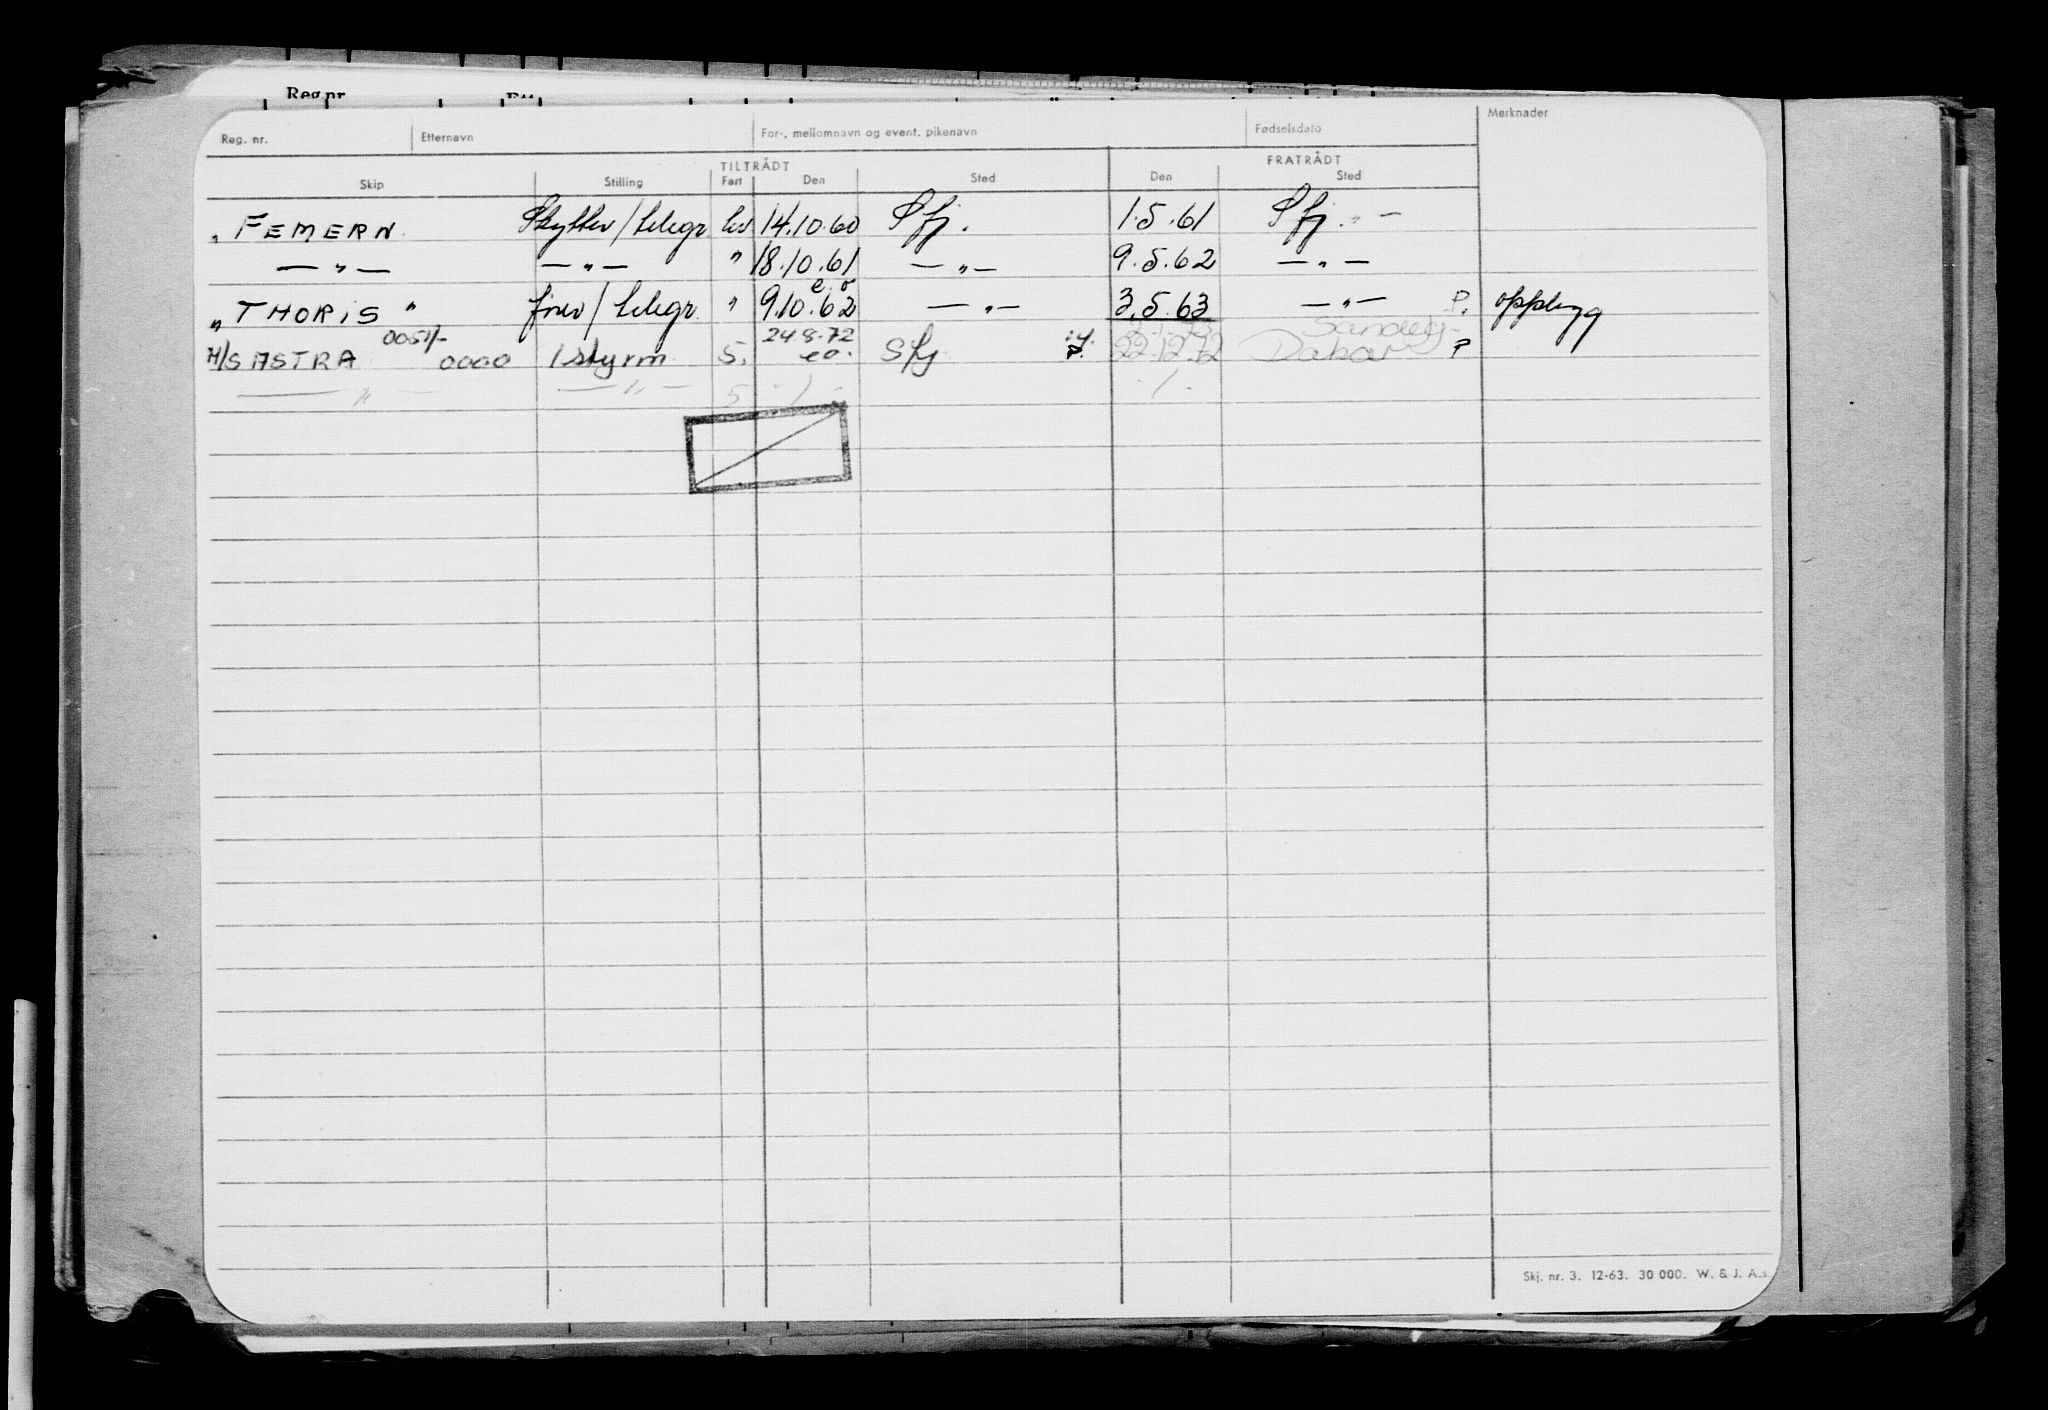 Reg.nr.
Reg. nr. Etternavn For-, mellomnavn og event. pikenavn Fødselsdato Merknader
TILTRÅDT FRATRÅDT
Skip Stilling Fart Den Sted Den Sted
„ FEMERN. Skytter/telegr. 14.10.60 Sfj. 1.5.61 Sfj. „ —
— „ — — „ — „ 18.10.61 — „ — 9.5.62 — „ —
e o
„ THORIS „ telegr. „ 9.10.62 — „ — 3.5.63 — „ — P. opplegg
0051/- 24.8.72 2.1.73
M/S ASTRA 0000 1 styrm. S. eo. Sfj P. 22.12.72 Dakar P
— „ — — „ — S - / - - / -
Skj. nr. 3. 12-63. 30 000. W. & J. A.s